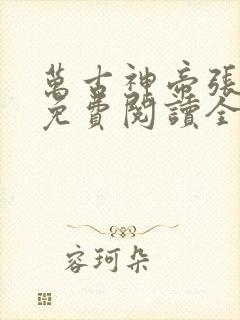 萬古神帝張
免費閱讀全
容珂朵